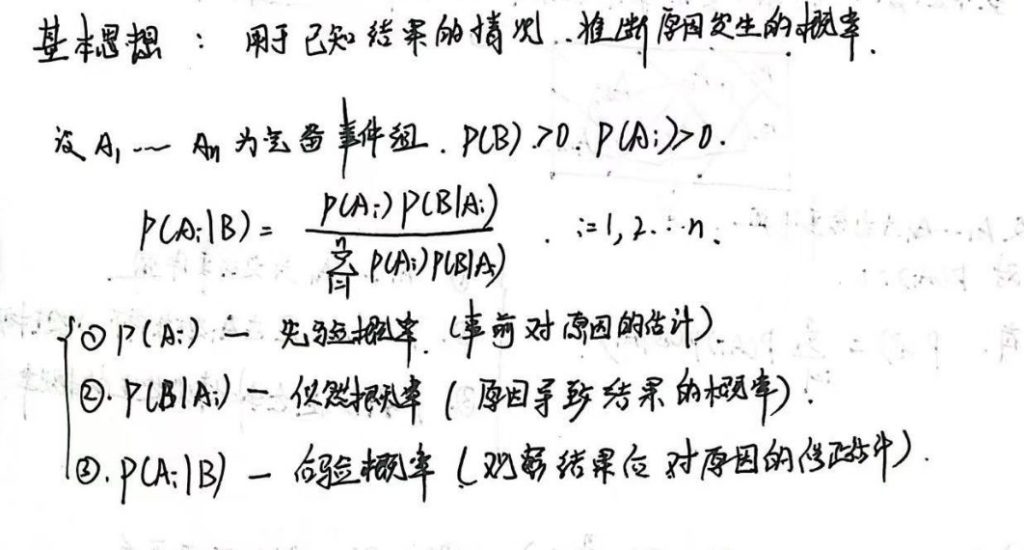 基本思想：用于已知结果的情况..推断原因发生的概率.
设 A₁ --- Aₙ 为完备事件组. P(B)>0. P(Aᵢ)>0.
P(Aᵢ|B) = P(Aᵢ)P(B|Aᵢ) / ∑ⁿᵢ₌₁ P(Aᵢ)P(B|Aᵢ) . i=1,2...n.
① P(Aᵢ) — 先验概率.(事前对原因的估计).
②. P(B|Aᵢ) — 似然概率 (原因导致结果的概率).
③. P(Aᵢ|B) — 后验概率 (观察结果后对原因的修正估计).